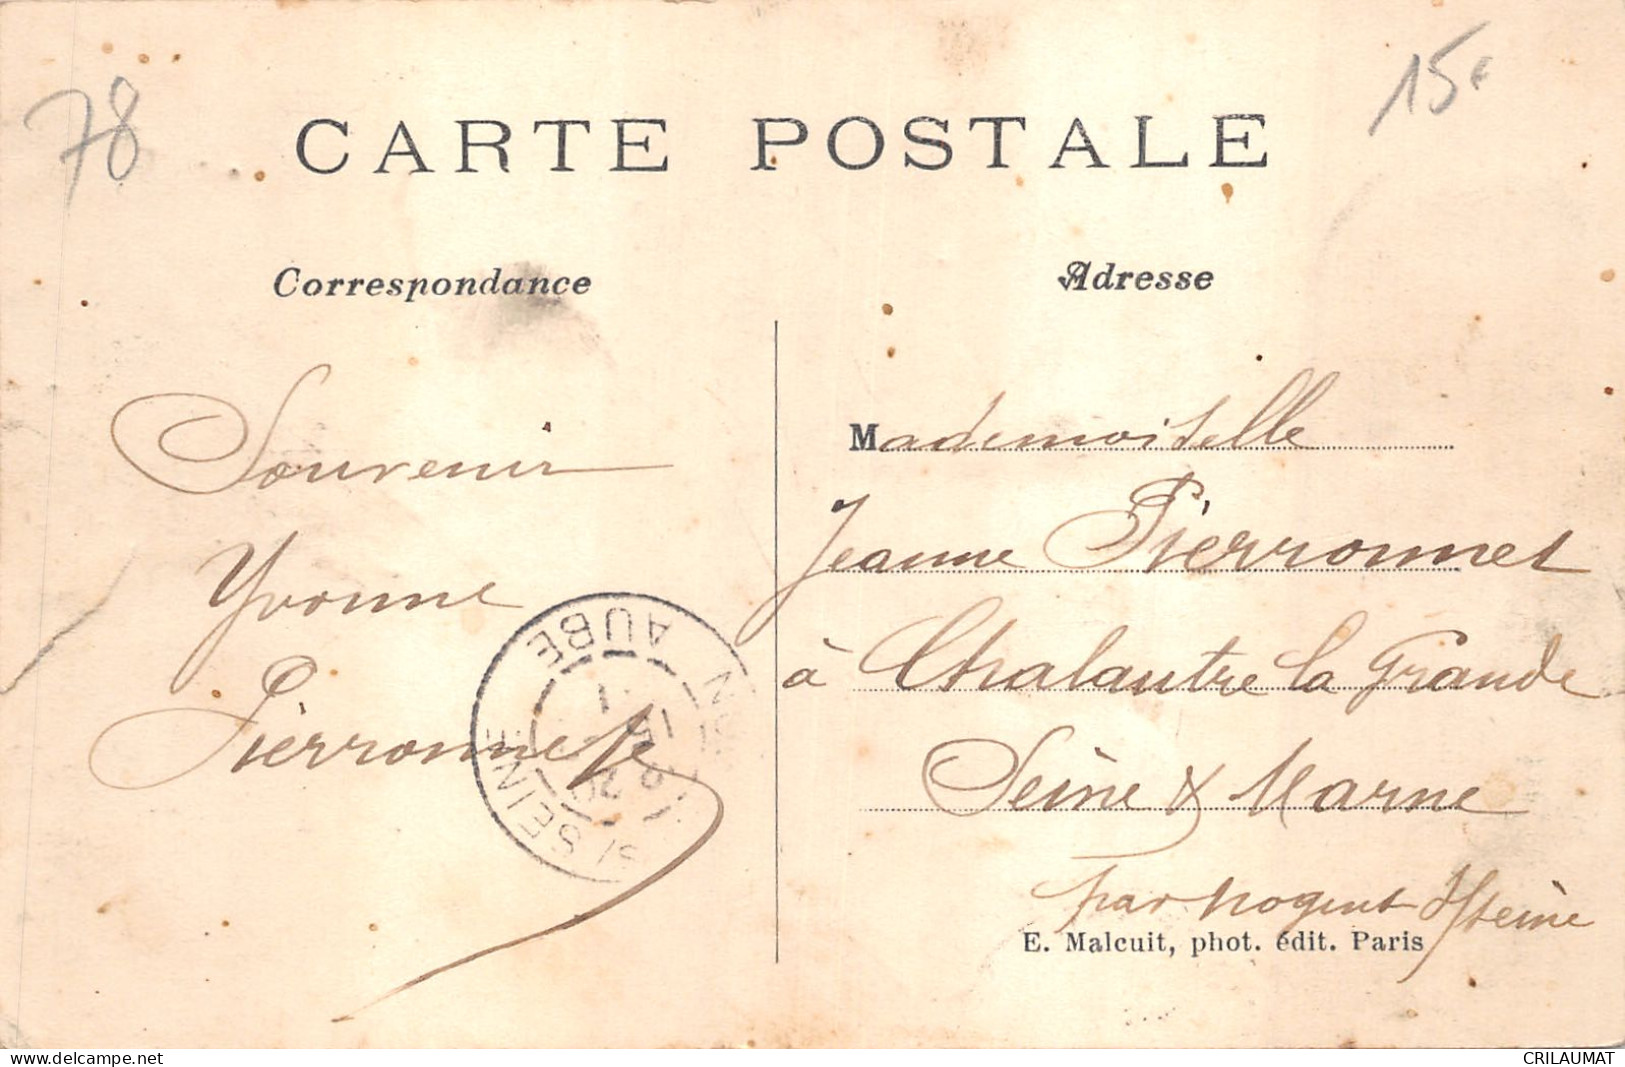 78
15€
CARTE POSTALE
Correspondance
Adresse
Souvenir
Yvonne
Pierronnet
Mademoiselle
Jeanne Pierronnet
à Chalautre la Grande
Seine & Marne
par Nogent s/ Seine
E. Malcuit, phot. édit. Paris
S/ SEINE
AUBE
delcampe.net
CRILAUMAT